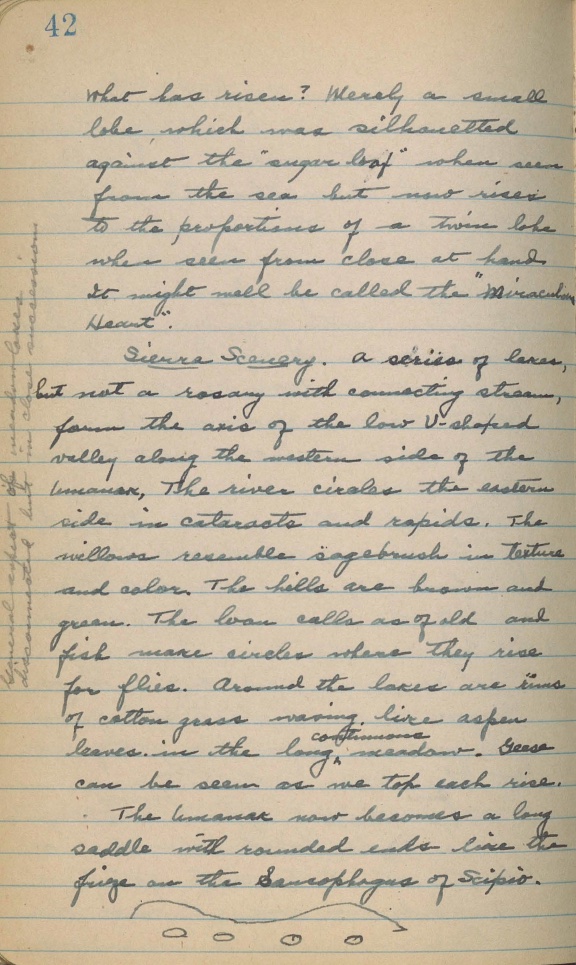 42
What has risen? Merely a small
lobe which was silhouetted
against the "sugar loaf" when seen
from the sea but now rises
to the proportions of a twin lobe
when seen from close at hand
It might well be called the "Miraculous
Heart".
Sierra Scenery. A series of lakes,
but not a rosary with connecting stream,
form the axis of the low U-shaped
valley along the western side of the
Umanak, The river circles the eastern
side in cataracts and rapids. The
willows resemble sagebrush in texture
and color. The hills are brown and
green. The loon calls as of old and
fish make circles where they rise
for flies. Around the lakes are rims
of cotton grass waving like aspen
leaves in the long continuous meadow. Geese
can be seen as we top each rise.
The Umanak now becomes a long
saddle with rounded ends like the
frieze on the Sarcophagus of Scipio.
General aspect of meadow lakes
disconnected but in close succession